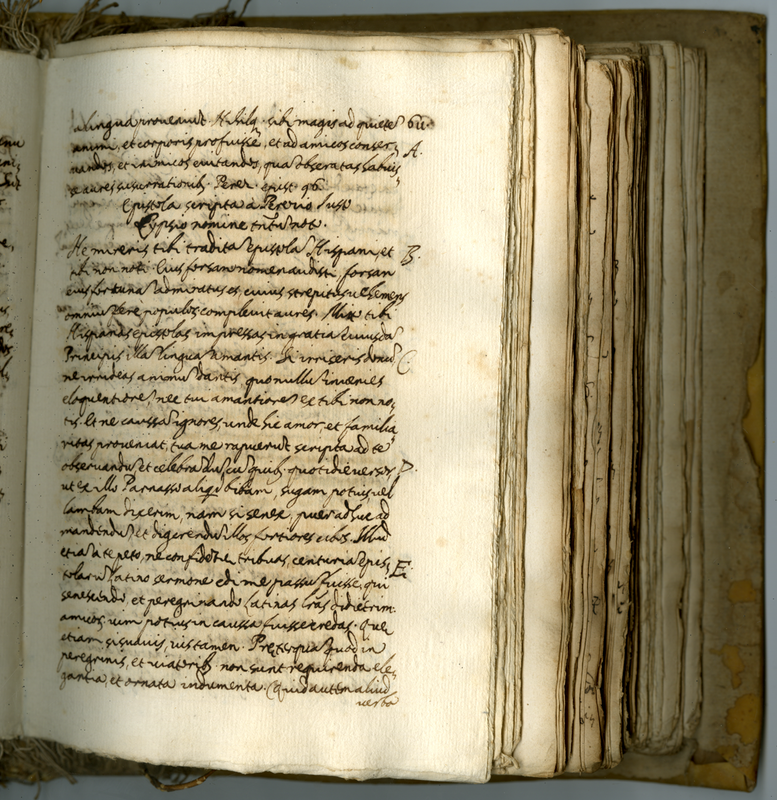 a lingua proveniut. Nihilq̃. sibi magis ad quietẽ 611.
animi, et corporis profuisse, et ad amicos conser, A.
vandos, et inimicos evitandos, quã obseratas habuis,
se aures susurrationib. Perez. epist. 96.
Epistola scripta a Petrio Justo
Lypsio nomine tritũ not.
Ne mireris tibi traditã epistolã Hispani, et B.
tibi non noti. Cuius forsan nomen audisti, forsan
eius fortunã admiratus es, cuius strepitus vehemens
omniũ fere populos complevit aures. Mitto tibi
Hispanas epistolas impressas in gratiã cuiusdã
Principis illã linguã amantis. Si irriseris donũ C.
ne irrideas animũ dantis, quo nullũ invenies
eloquentiorẽ, nec tui amantiorẽ ex tibi non no,
tis. Et ne caussã ignores unde hic amor, et familia
ritas proveniat, tua me rapuerũt scripta ad te
observandũ, et celebrãdũ, cũ quib. quotidie versor D.
ut ex illo Parnasso aliqd bibam, sugam potius vel
lambam dixerim, nam si senex, puer adhuc ad
mandendũ, et digerendũ illos fortiores cibos. Illud
etiã a te peto, ne confidẽtiæ tribuas, centuriã epis, E.
tolarũ latino sermone edi me passũ fuisse, qui
senescendo, et peregrinando Latinas lr̃as didicerim.
amicos, vim potius in caussa fuisse credas. Quæ
etiam si suavis, vis tamen. Prætequã quod in
peregrinis, et viatorib. non sunt requirenda ele,
gantia, et ornata indumenta. Quid autem aliud
verba